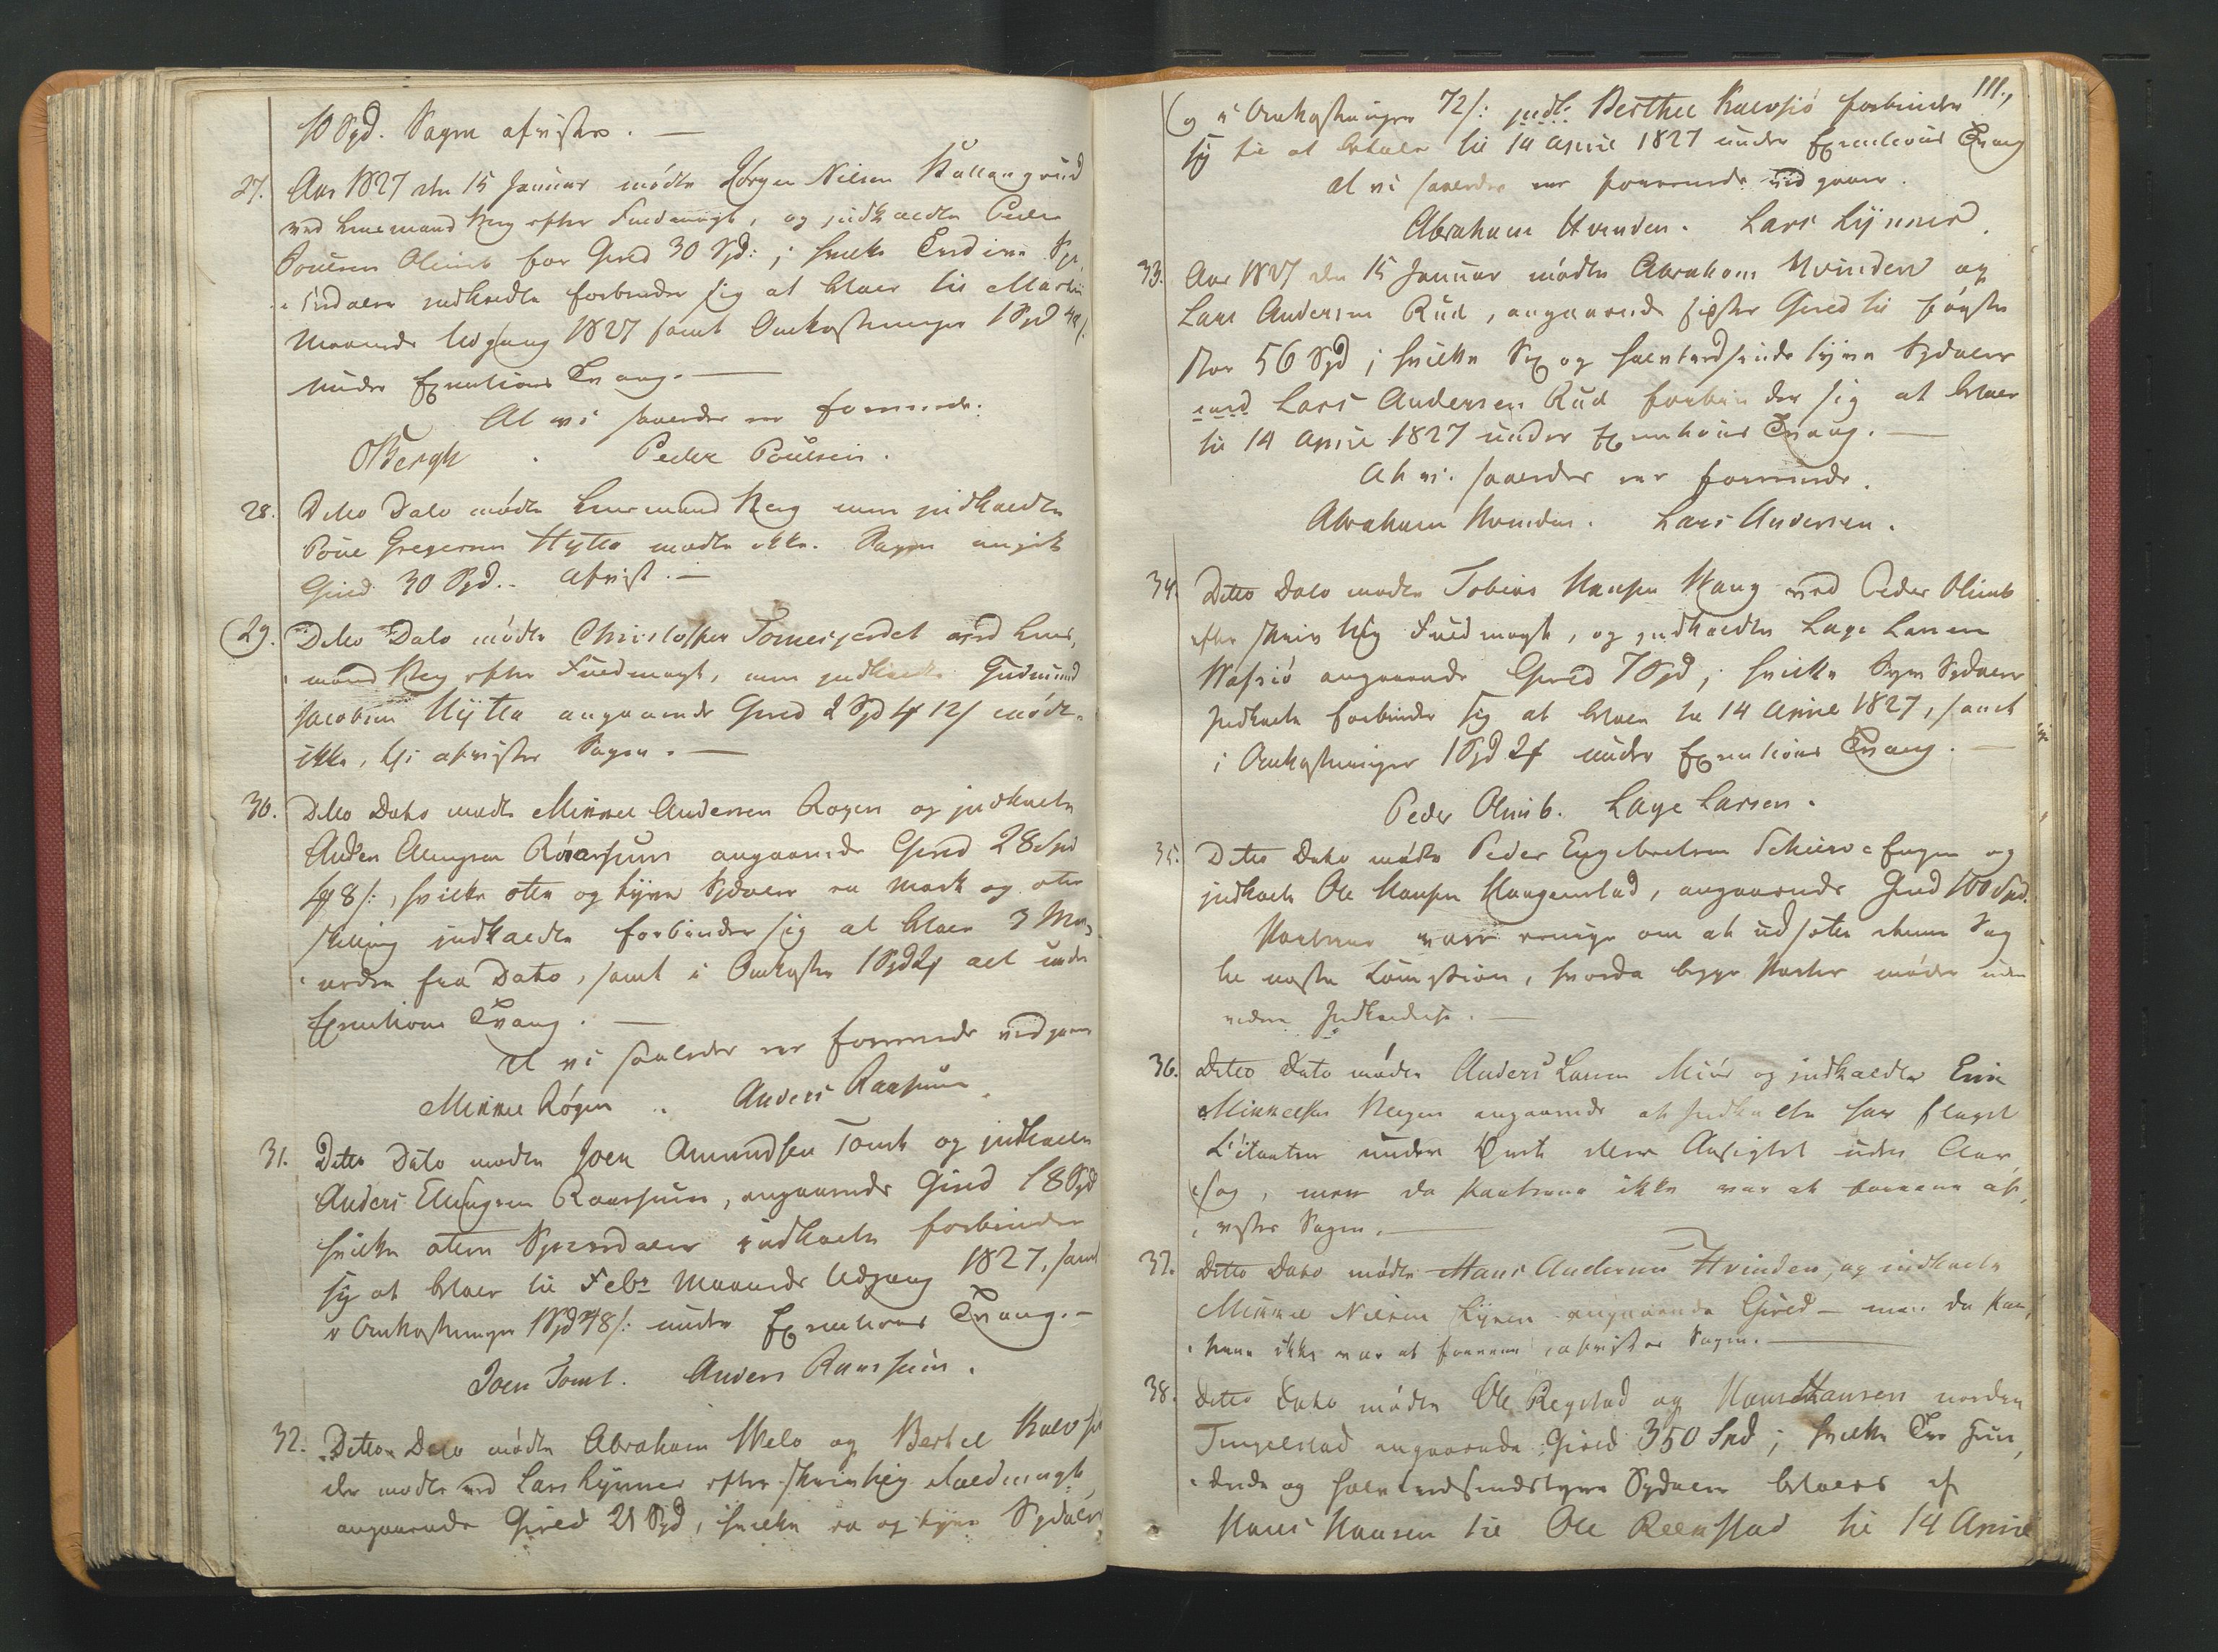 10 Spd. Sagen afvistes. —
27. Aar 1827 den 15 Januar mødte Jørgen Nielsen Kullangrud
ved Lensmand Berg efter Fuldmagt, og indkaldte Peder
Poulsen Olimb for Gield 30 Spd: ; hvilke Tredive Spe-
ciesdaler indkaldte forbinder sig at betale til Martii
Maaneds Udgang 1827 samt Omkostninger 1 Spd 48 s.
under Executions Tvang. —
At vi saaledes ere forenede.
OBergh . Peder Poulsen.
28. Ditto Dato mødte Lensmand Berg men indkaldte
Poul Gregersen Hytta mødte ikke. Sagen angik
Gield 30 Spd. - Afvist. —
29. Ditto Dato mødte Christopher Tomesjordet ved Lens-
mand Berg efter Fuldmagt, men indkaldte Gudmund
Jacobsen Hytta angaaende Gield 2 Spd 12 s mødte
ikke, thi afvistes Sagen. —
30. Ditto Dato mødte Mikkel Andersen Rogen og indkaldte
Anders Raasum angaaende Gield 28 Spd
8 s:, hvilke otte og tyve Spdaler en Mark og otte
skilling indkaldte forbinder sig at betale 3 Maa-
neder fra Dato, samt i Omkostn 1 Spd 2 alt under
Executions Tvang. —
At vi saaledes ere forenede vidgaaes
Mikkel Rögen . Anders Raasum.
31. Ditto Dato mødte Joen Amundsen Tomt og indkaldte
Anders Raasum, angaaende Gield 18 Spd
hvilke atten Speciesdaler indkaldte forbinder
sig at betale til Febr Maaneds Udgang 1827, samt
i Omkostninger 1 Spd 48 s: under Executions Tvang. —
Joen Tomt. Anders Raassum.
32. Ditto Dato mødte Abraham Melo og Berthel Kalvsjø
der mødte ved Lars Lynner efter skriftlig Fuldmagt,
angaaende Gield 21 Spd, hvilke en og tyve Spdaler
111.
og i Omkostninger 72 s: indk: Berthel Kalvsjø forbinder
sig til at betale til 14 April 1827 under Executions Tvang
at vi saaledes ere forenede vidgaaes.
Abraham Hvinden. Lars Lynner.
33. Aar 1827 den 15 Januar mødte Abraham Hvinden og
Lars Andersen Rud, angaaende sidstes Gield til første
stor 56 Spd; hvilke Sex og halvtredsindstyve Spdaler
Lars Andersen Rud forbinder sig at betale
til 14 April 1827 under Executions Tvang. —
At vi saaledes ere forenede.
Abraham Hvinden. Lars Andersen.
34. Ditto Dato mødte Tobias Hansen Wang ved Peder Olimb
efter skriftlig Fuldmagt, og indkaldte Lage Larsen
angaaende Gield 7 Spd; hvilke Syv Spdaler
Indkaldte forbinder sig at betale til 14 April 1827, samt
i Omkostninger 1 Spd 2 under Executions Tvang. —
Peder Olimb. Lage Larsen.
35. Ditto Dato mødte Peder Engebretsen Schiervefugen og
indkaldte Ole Hansen Haagenstad, angaaende Gield 100 Spd.
Parterne vare enige om at udsætte denne Sag
til næste Comission, hvorda begge Parter møder uden
videre Indkaldelse. —
36. Ditto Dato mødte Anders Larsen og indkaldte Erik
Mikkelsen angaaende at Indkaldte har slaget
Citanten under Ansigtet uden Aar-
sag, men da Parterne ikke var at forene af-
vistes Sagen. —
37. Ditto Dato mødte Hans Andersen Hvinden, og indkaldte
Mikkel Nielsen Lynen angaaende Gield — men da Par-
terne ikke var at forene, afvistes Sagen. —
38. Ditto Dato mødte Ole Regstad og Hans Hansen nordre
Tingelstad angaaende Gield 350 Spd; hvilke Tre hun-
drede og halvtredsindstyve Spdaler betales af
Hans Hansen til Ole Reekstad til 14 April